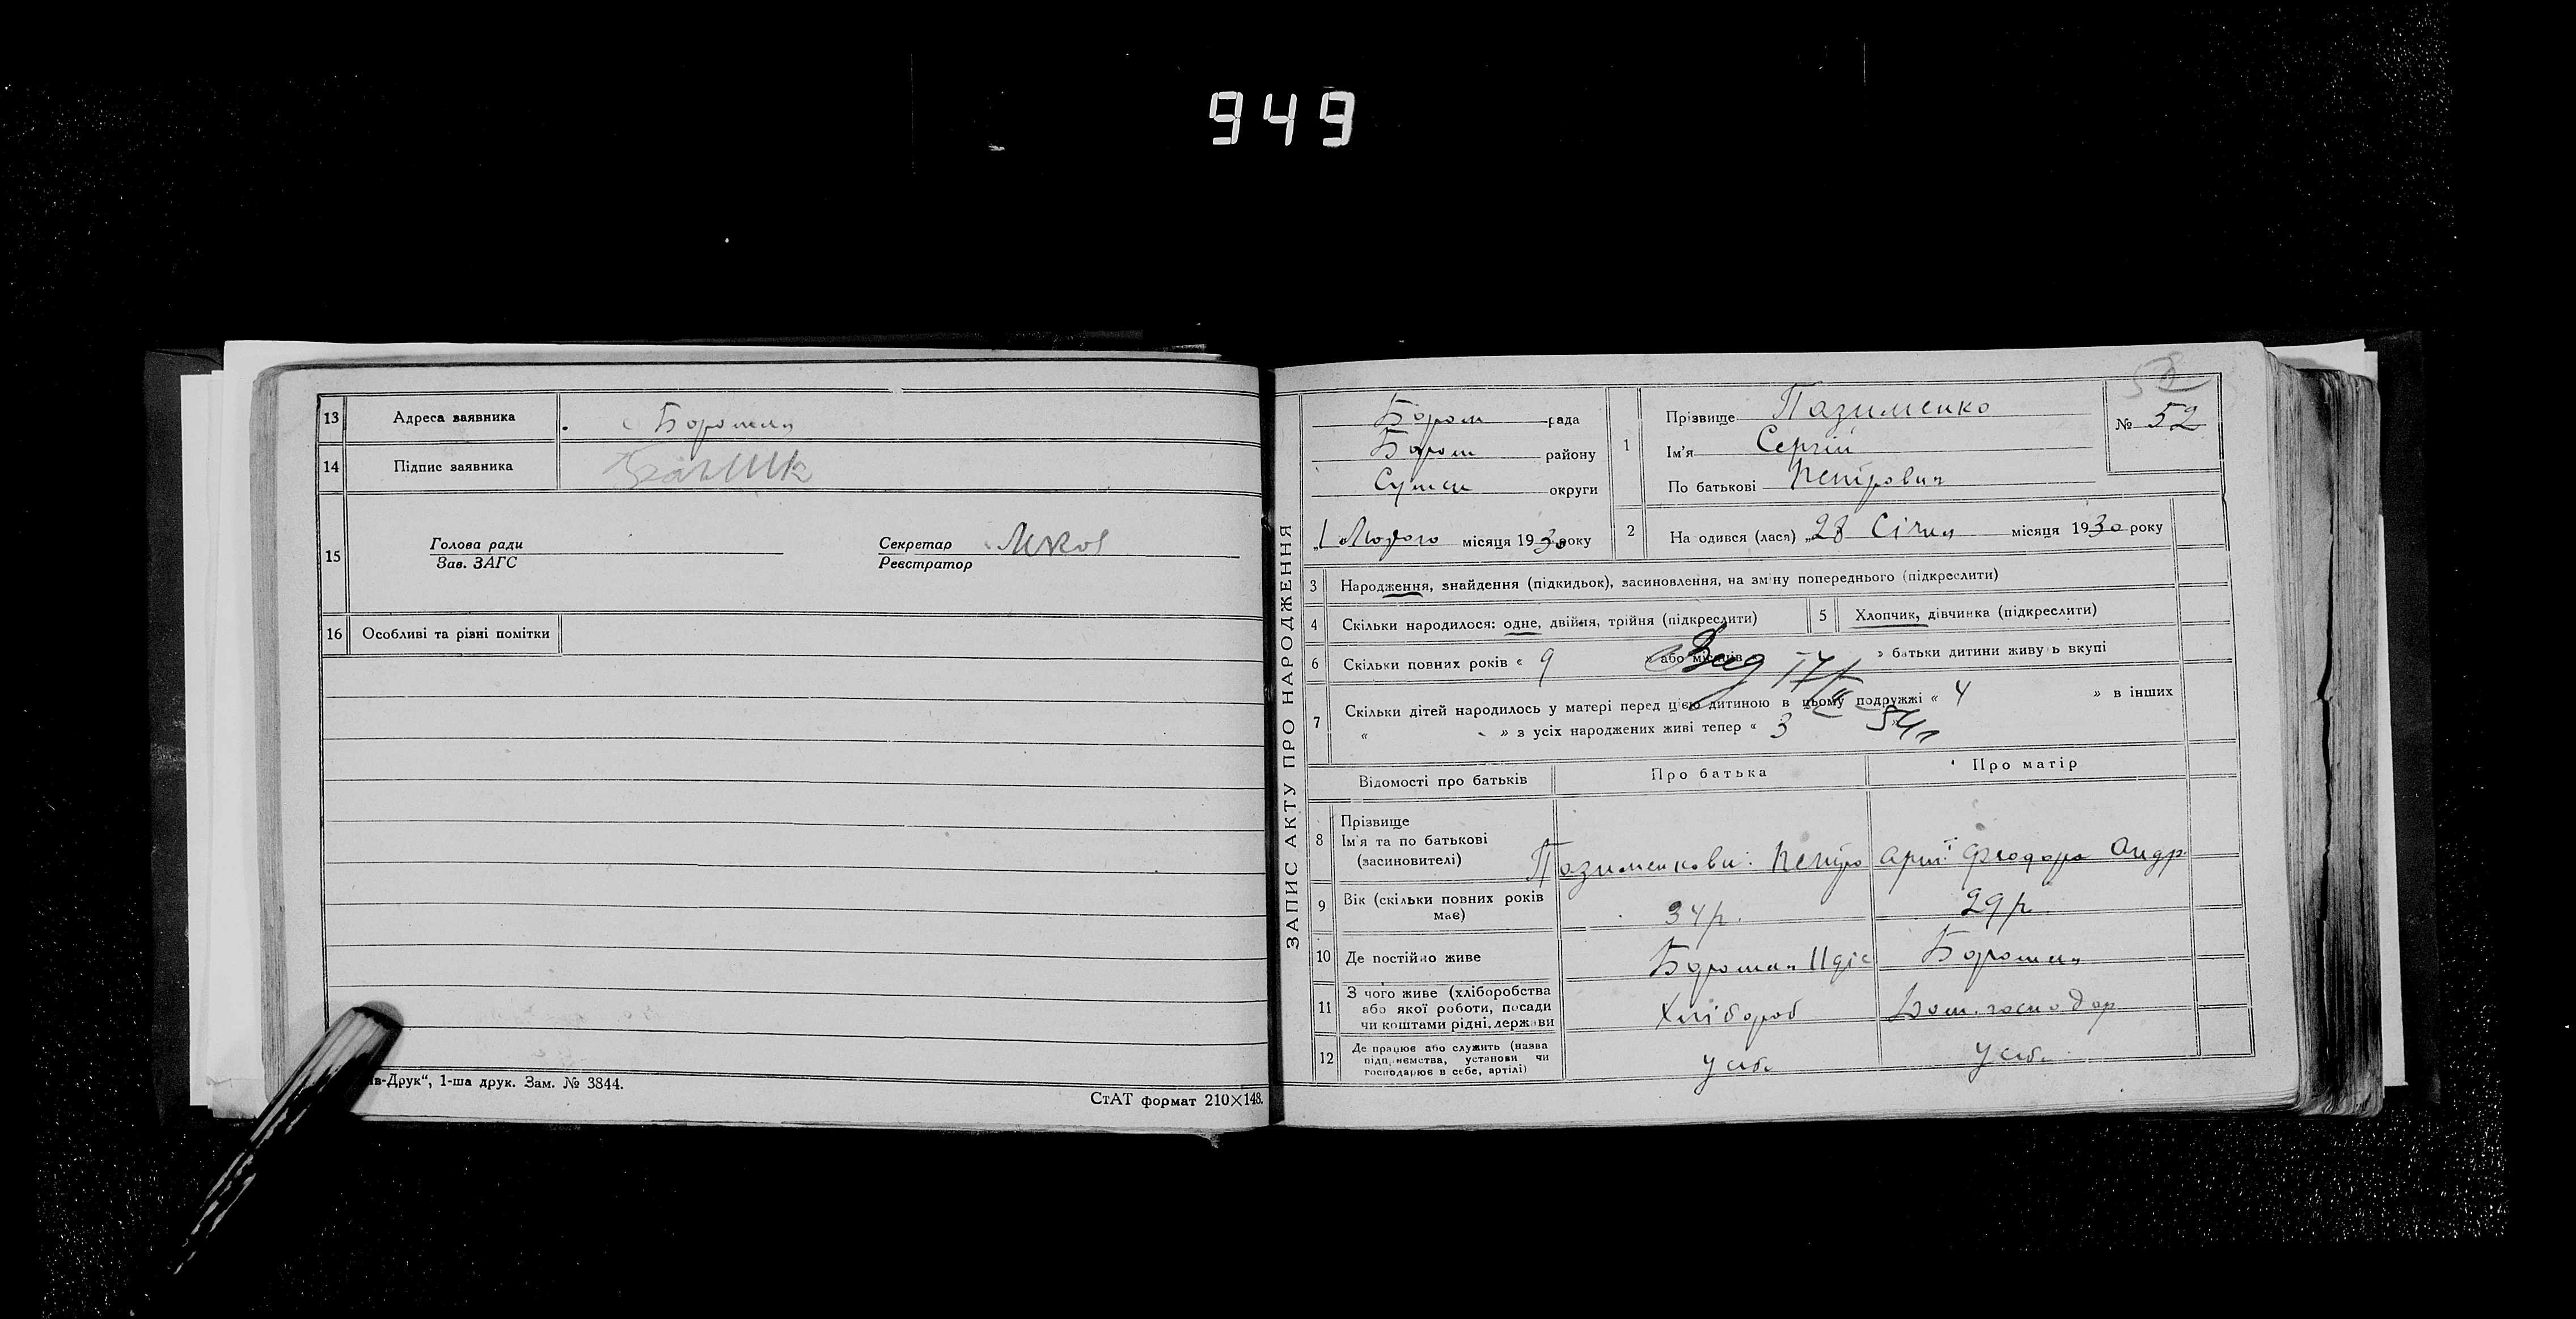 949
13 Адреса заявника Боромля
14 Підпис заявника
15 Голова ради Секретар
Зав. ЗАГС Реєстратор
16 Особливі та різні помітки
в-Друк“, 1-ша друк. Зам. № 3844.
СтАТ формат 210×148.
ЗАПИС АКТУ ПРО НАРОДЖЕННЯ
Бором рада
Бором району
Сумськ округи
„1 Лютого місяця 1930 року
1 Прізвище Пазименко
Ім'я Сергій
По батькові Петрович
№ 52
2 На одився (лася) „28 Січня місяця 1930 року
3 Народження, знайдення (підкидьок), засиновлення, на зміну попереднього (підкреслити)
4 Скільки народилося: одне, двійня, трійня (підкреслити)
5 Хлопчик, дівчинка (підкреслити)
6 Скільки повних років « 9 » або місяців « » батьки дитини живуть вкупі
7 Скільки дітей народилось у матері перед цією дитиною в цьому подружжі « 4 » в інших
« » з усіх народжених живі тепер « 3
Відомості про батьків Про батька Про матір
8 Прізвище
Ім'я та по батькові
(засиновителі)
Пазименкови: Петро Феодора Андр.
9 Вік (скільки повних років
має)
34 р. 29 р.
10 Де постійно живе Боромля Боромля
11 З чого живе (хліборобства
або якої роботи, посади
чи коштами рідні, держави
Хлібороб Дом. господар
12 Де працює або служить (назва
підприємства, установи чи
господарює в себе, артілі)
У себе У себе